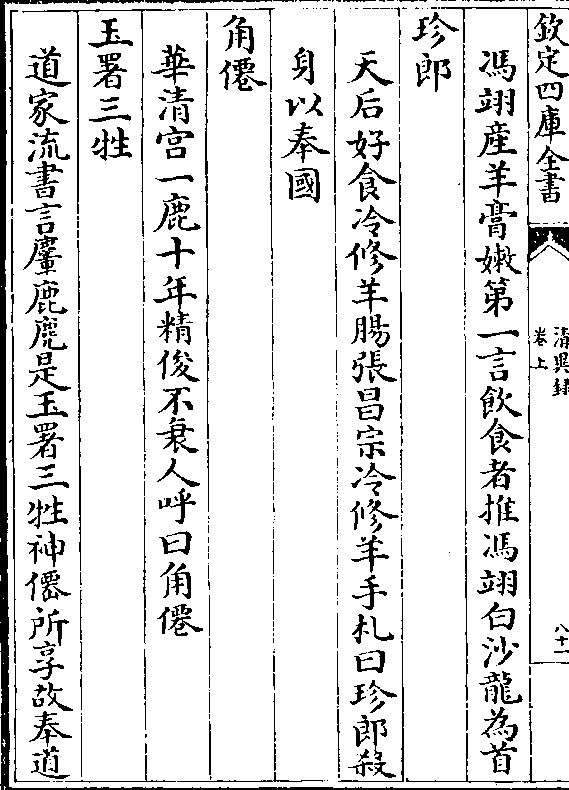 欽定四庫全書
清異録
卷上
八十一
馮翊産羊膏嫩第一言飲食者推馮翊白沙龍為首
珍郎
天后好食冷修羊腸張昌宗冷修羊手札曰珍郎殺
身以奉國
角僊
華清宫一鹿十年精俊不衰人呼曰角僊
玉署三牲
道家流書言麞鹿麂是玉署三牲神僊所享故奉道